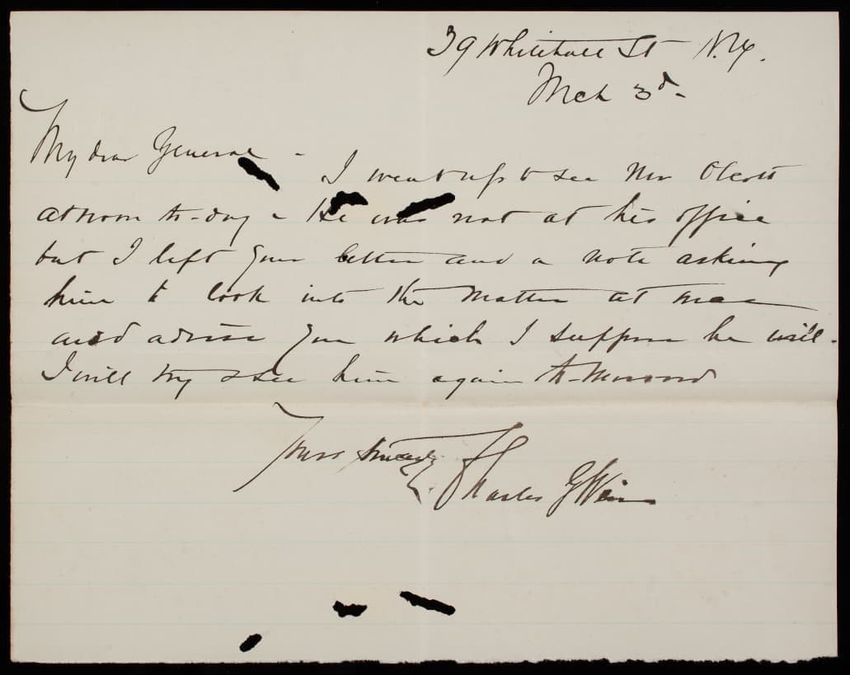 39 Whitehall St N.Y.
Mch 3d.
My dear General - I went up to see Mr Olcott
at noon to-day - He was not at his office
but I left your letter and a note asking
him to look into the matter at once
and advise you which I suppose he will.
I will try & see him again to-morrow
Yours sincerely
Charles G